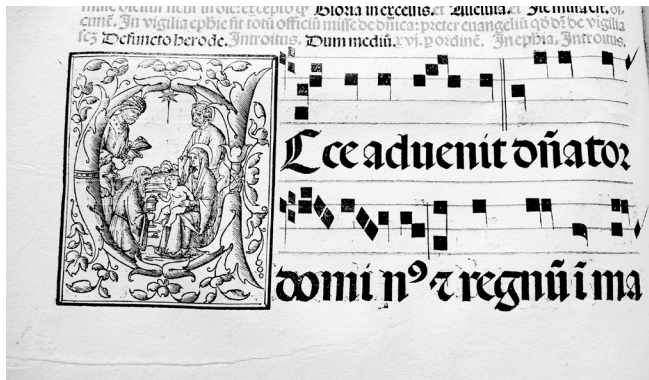 Gloria in excelsis. et Alleluia. et Ite missa est. oĩ.
cunt̃. In vigilia ephie fit totũ officiũ misse de dñica: preter euangeliũ qð ðr̃ de vigilia
scz Defuncto herode. Introitus. Dum mediũ. xvi. p ordinẽ. In ephia, Introitus.
Ecce aduenit dñator
domi nꝰ ⁊ regnũ ĩ ma